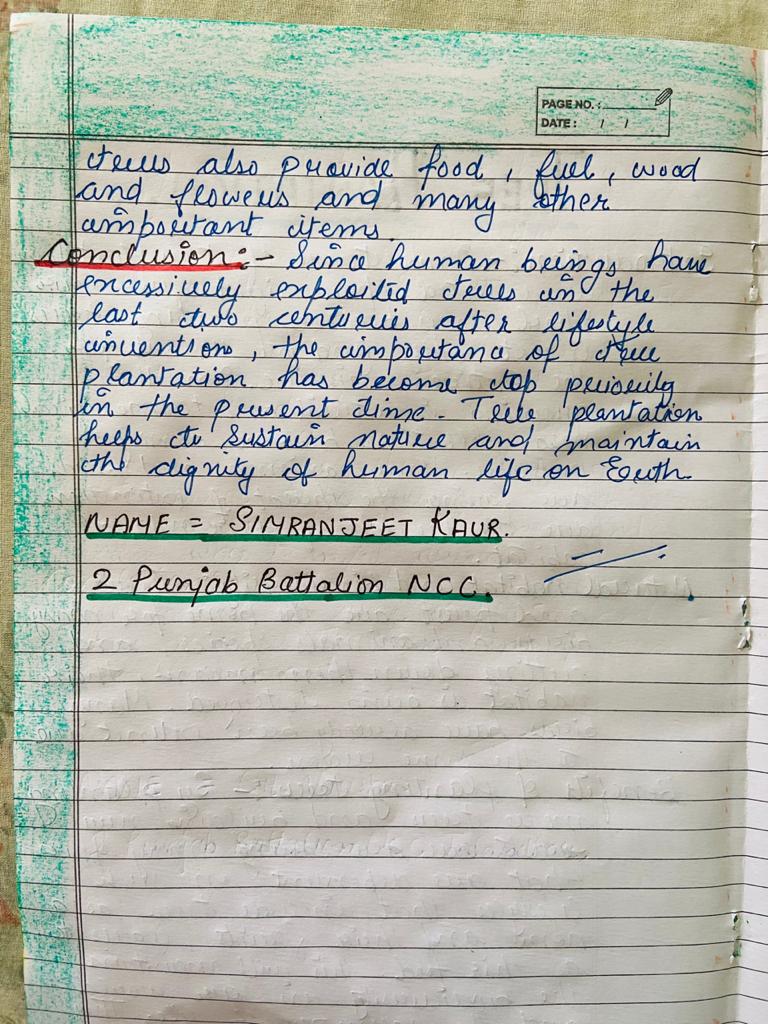 PAGE NO. :
DATE : / /
trees also provide food , fuel , wood
and flowers and many other
important items.
Conclusion:- Since human beings have
excessively exploited trees in the
last two centuries after lifestyle
invention, the importance of tree
plantation has become top priority
in the present time. Tree plantation
helps to sustain nature and maintain
the dignity of human life on Earth.
NAME = SIMRANJEET KAUR.
2 Punjab Battalion NCC.